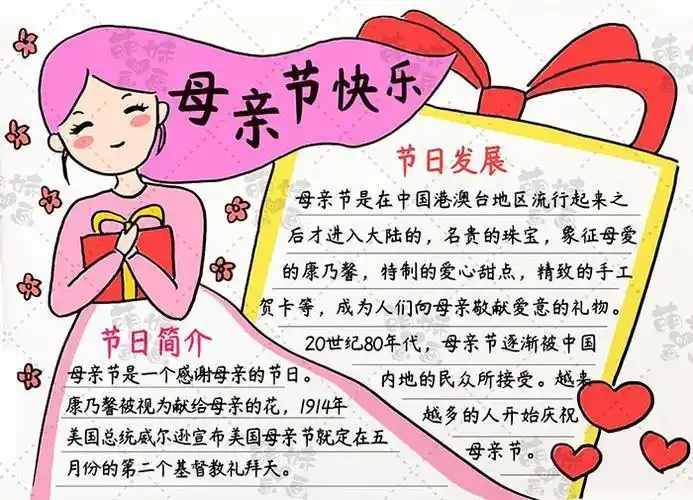 母亲节快乐
节日发展
母亲节是在中国港澳台地区流行起来之
后才进入大陆的，名贵的珠宝，象征母爱
的康乃馨，特制的爱心甜点，精致的手工
贺卡等，成为人们向母亲敬献爱意的礼物。
20世纪80年代，母亲节逐渐被中国
内地的民众所接受。越来
越多的人开始庆祝
母亲节。
节日简介
母亲节是一个感谢母亲的节日。
康乃馨被视为献给母亲的花，1914年
美国总统威尔逊宣布美国母亲节就定在五
月份的第二个基督教礼拜天。